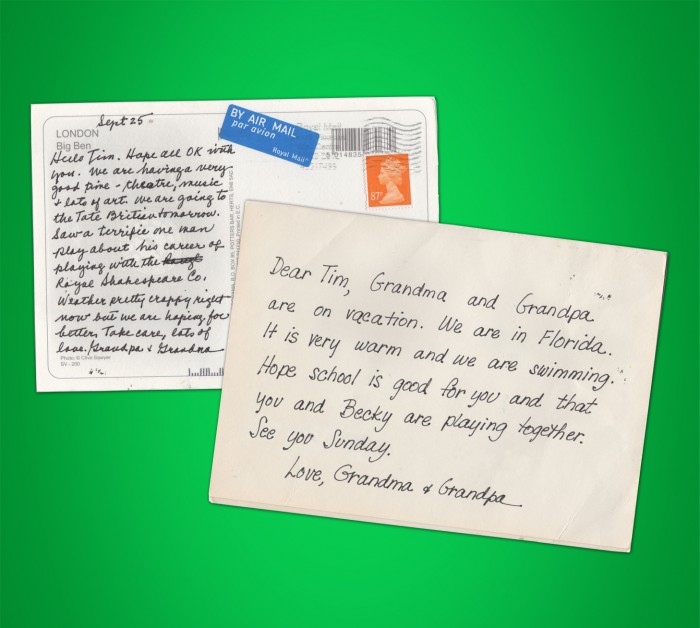 Sept 25
LONDON
Big Ben
Hello Tim. Hope all OK with
you. We are having a very
good time - theatre, music
+ lots of art. We are going to
the Tate Britain tomorrow.
Saw a terrific one man
play about his career of
playing with the
Royal Shakespeare Co.
Weather pretty crappy right
now but we are hoping for
better. Take care, lots of
love, Grandpa & Grandma
Photo: © Clive Sawyer
SV - 200
BY AIR MAIL
par avion
Royal Mail
Royal Mail
87P
Dear Tim, Grandma and Grandpa
are on vacation. We are in Florida.
It is very warm and we are swimming.
Hope school is good for you and that
you and Becky are playing together.
See you Sunday.
Love, Grandma & Grandpa